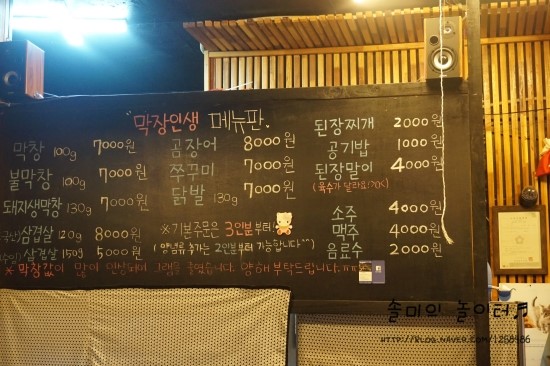 "막장인생 메뉴판"
막창 100g 7000원
불막창 100g 7000원
돼지생막창 130g 7000원
삼겹살 120g 8000원
삼겹살 150g 5000원
곰장어 8000원
쭈꾸미 7000원
닭발 130g 7000원
※기본주문은 3인분부터
(양념류 추가는 2인분부터 가능합니다^^)
된장찌개 2000원
공기밥 1000원
된장말이 4000원
(육수가 달라요!!OK)
소주 4000원
맥주 4000원
음료수 2000원
※ 막창값이 많이 인상돼어 그램을 줄였습니다. 양해 부탁드립니다.ㅠㅠ
솔미의 놀이터♬
HTTP://BLOG.NAVER.COM/1258986